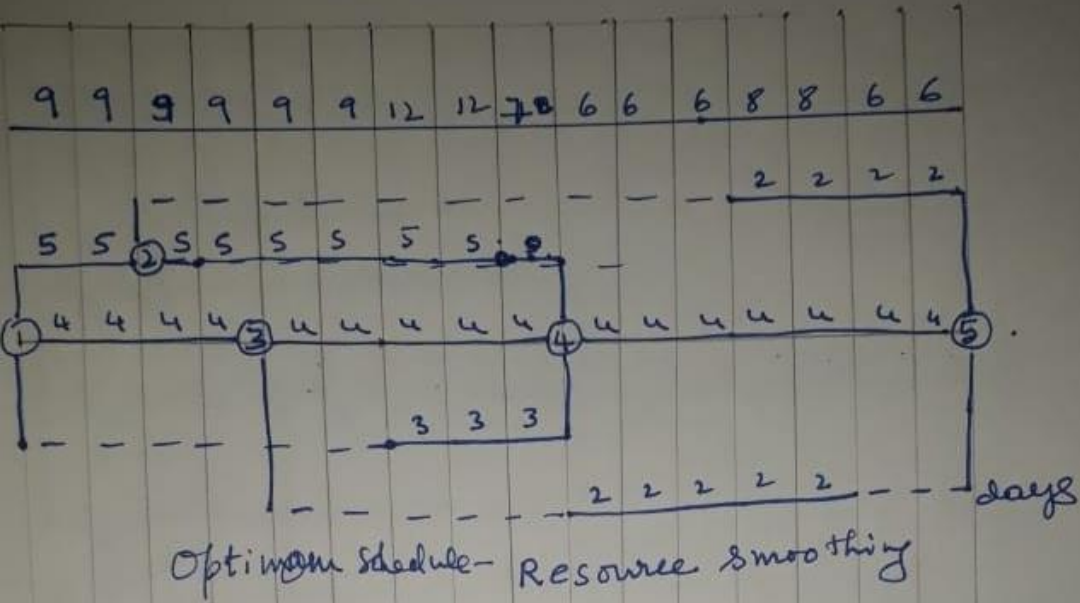 9 9 9 9 9 9 12 12 6 6 6 8 8 6 6
2 2 2 2
5 5 ② 5 5 5 5 5 5
① 4 4 4 4 ③ 4 4 4 4 4 ④ 4 4 4 4 4 4 4 ⑤
3 3 3
2 2 2 2 2 days
Optimom Schedule- Resource Smoothing